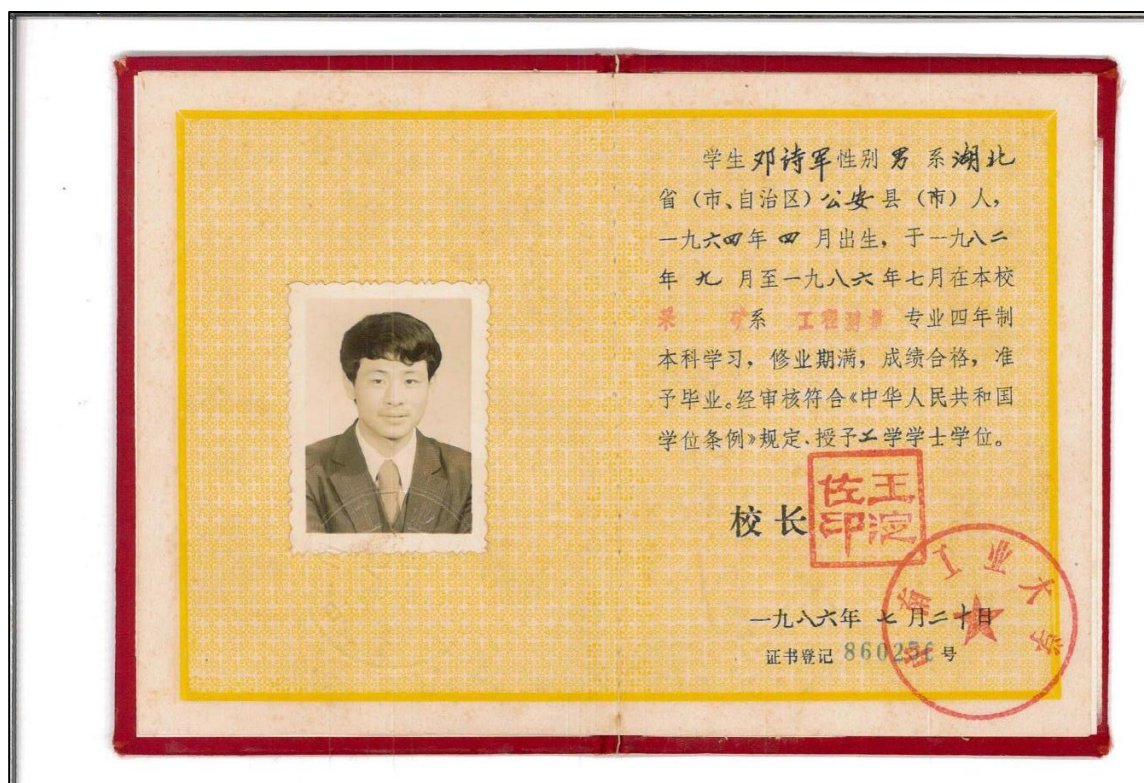 学生邓诗军性别男系湖北
省（市、自治区）公安县（市）人，
一九六四年四月出生，于一九八二
年九月至一九八六年七月在本校
采矿系工程测量专业四年制
本科学习，修业期满，成绩合格，准
予毕业。经审核符合《中华人民共和国
学位条例》规定、授予工学学士学位。
校长
王淀佐印
一九八六年七月二十日
证书登记 860256 号
中南工业大学